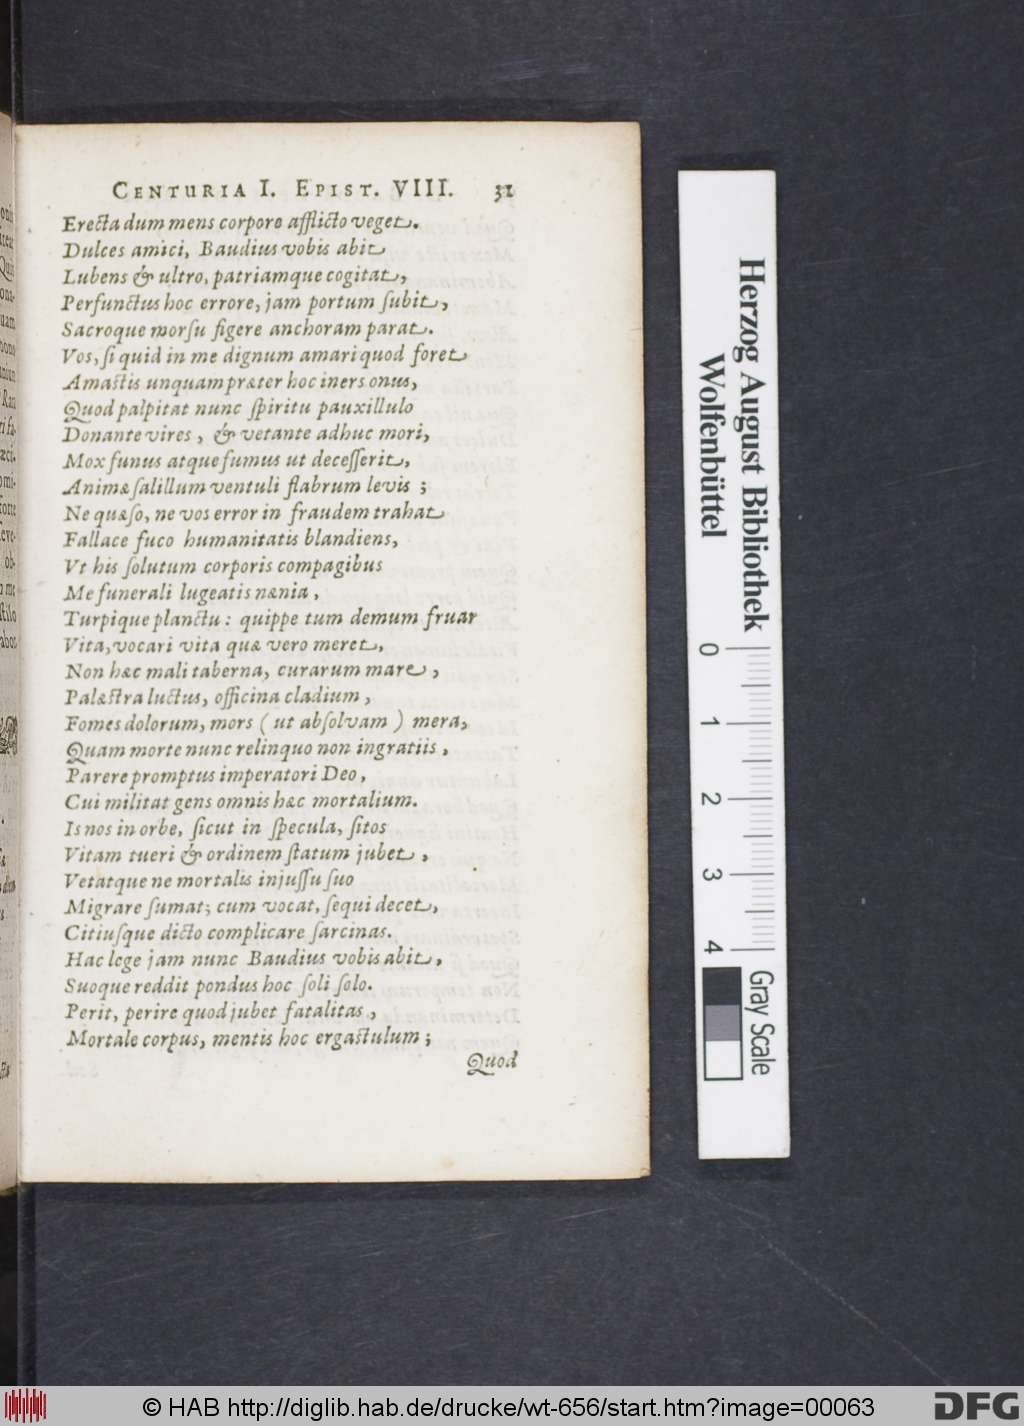 CENTURIA I. EPIST. VIII. 31
Erecta dum mens corpore afflicto veget.
Dulces amici, Baudius vobis abit
Lubens & ultro, patriamque cogitat,
Perfunctus hoc errore, jam portum ſubit,
Sacroque morſu figere anchoram parat.
Vos, ſi quid in me dignum amari quod foret
Amaſtis unquam præter hoc iners onus,
Quod palpitat nunc ſpiritu pauxillulo
Donante vires, & vetante adhuc mori,
Mox funus atque fumus ut deceſſerit,
Animæ ſalillum ventuli flabrum levis;
Ne quæſo, ne vos error in fraudem trahat
Fallace fuco humanitatis blandiens,
Vt his ſolutum corporis compagibus
Me funerali lugeatis nænia,
Turpique planctu: quippe tum demum fruar
Vita, vocari vita quæ vero meret,
Non hæc mali taberna, curarum mare,
Palæſtra luctus, officina cladium,
Fomes dolorum, mors (ut abſolvam) mera,
Quam morte nunc relinquo non ingratiis,
Parere promptus imperatori Deo,
Cui militat gens omnis hæc mortalium.
Is nos in orbe, ſicut in ſpecula, ſitos
Vitam tueri & ordinem ſtatum jubet,
Vetatque ne mortalis injuſſu ſuo
Migrare ſumat; cum vocat, ſequi decet,
Citiuſque dicto complicare ſarcinas.
Hac lege jam nunc Baudius vobis abit,
Suoque reddit pondus hoc ſoli ſolo.
Perit, perire quod jubet fatalitas,
Mortale corpus, mentis hoc ergaſtulum;
Quod
Herzog August Bibliothek
Wolfenbüttel
0 1 2 3 4
Gray Scale
© HAB http://diglib.hab.de/drucke/wt-656/start.htm?image=00063
DFG